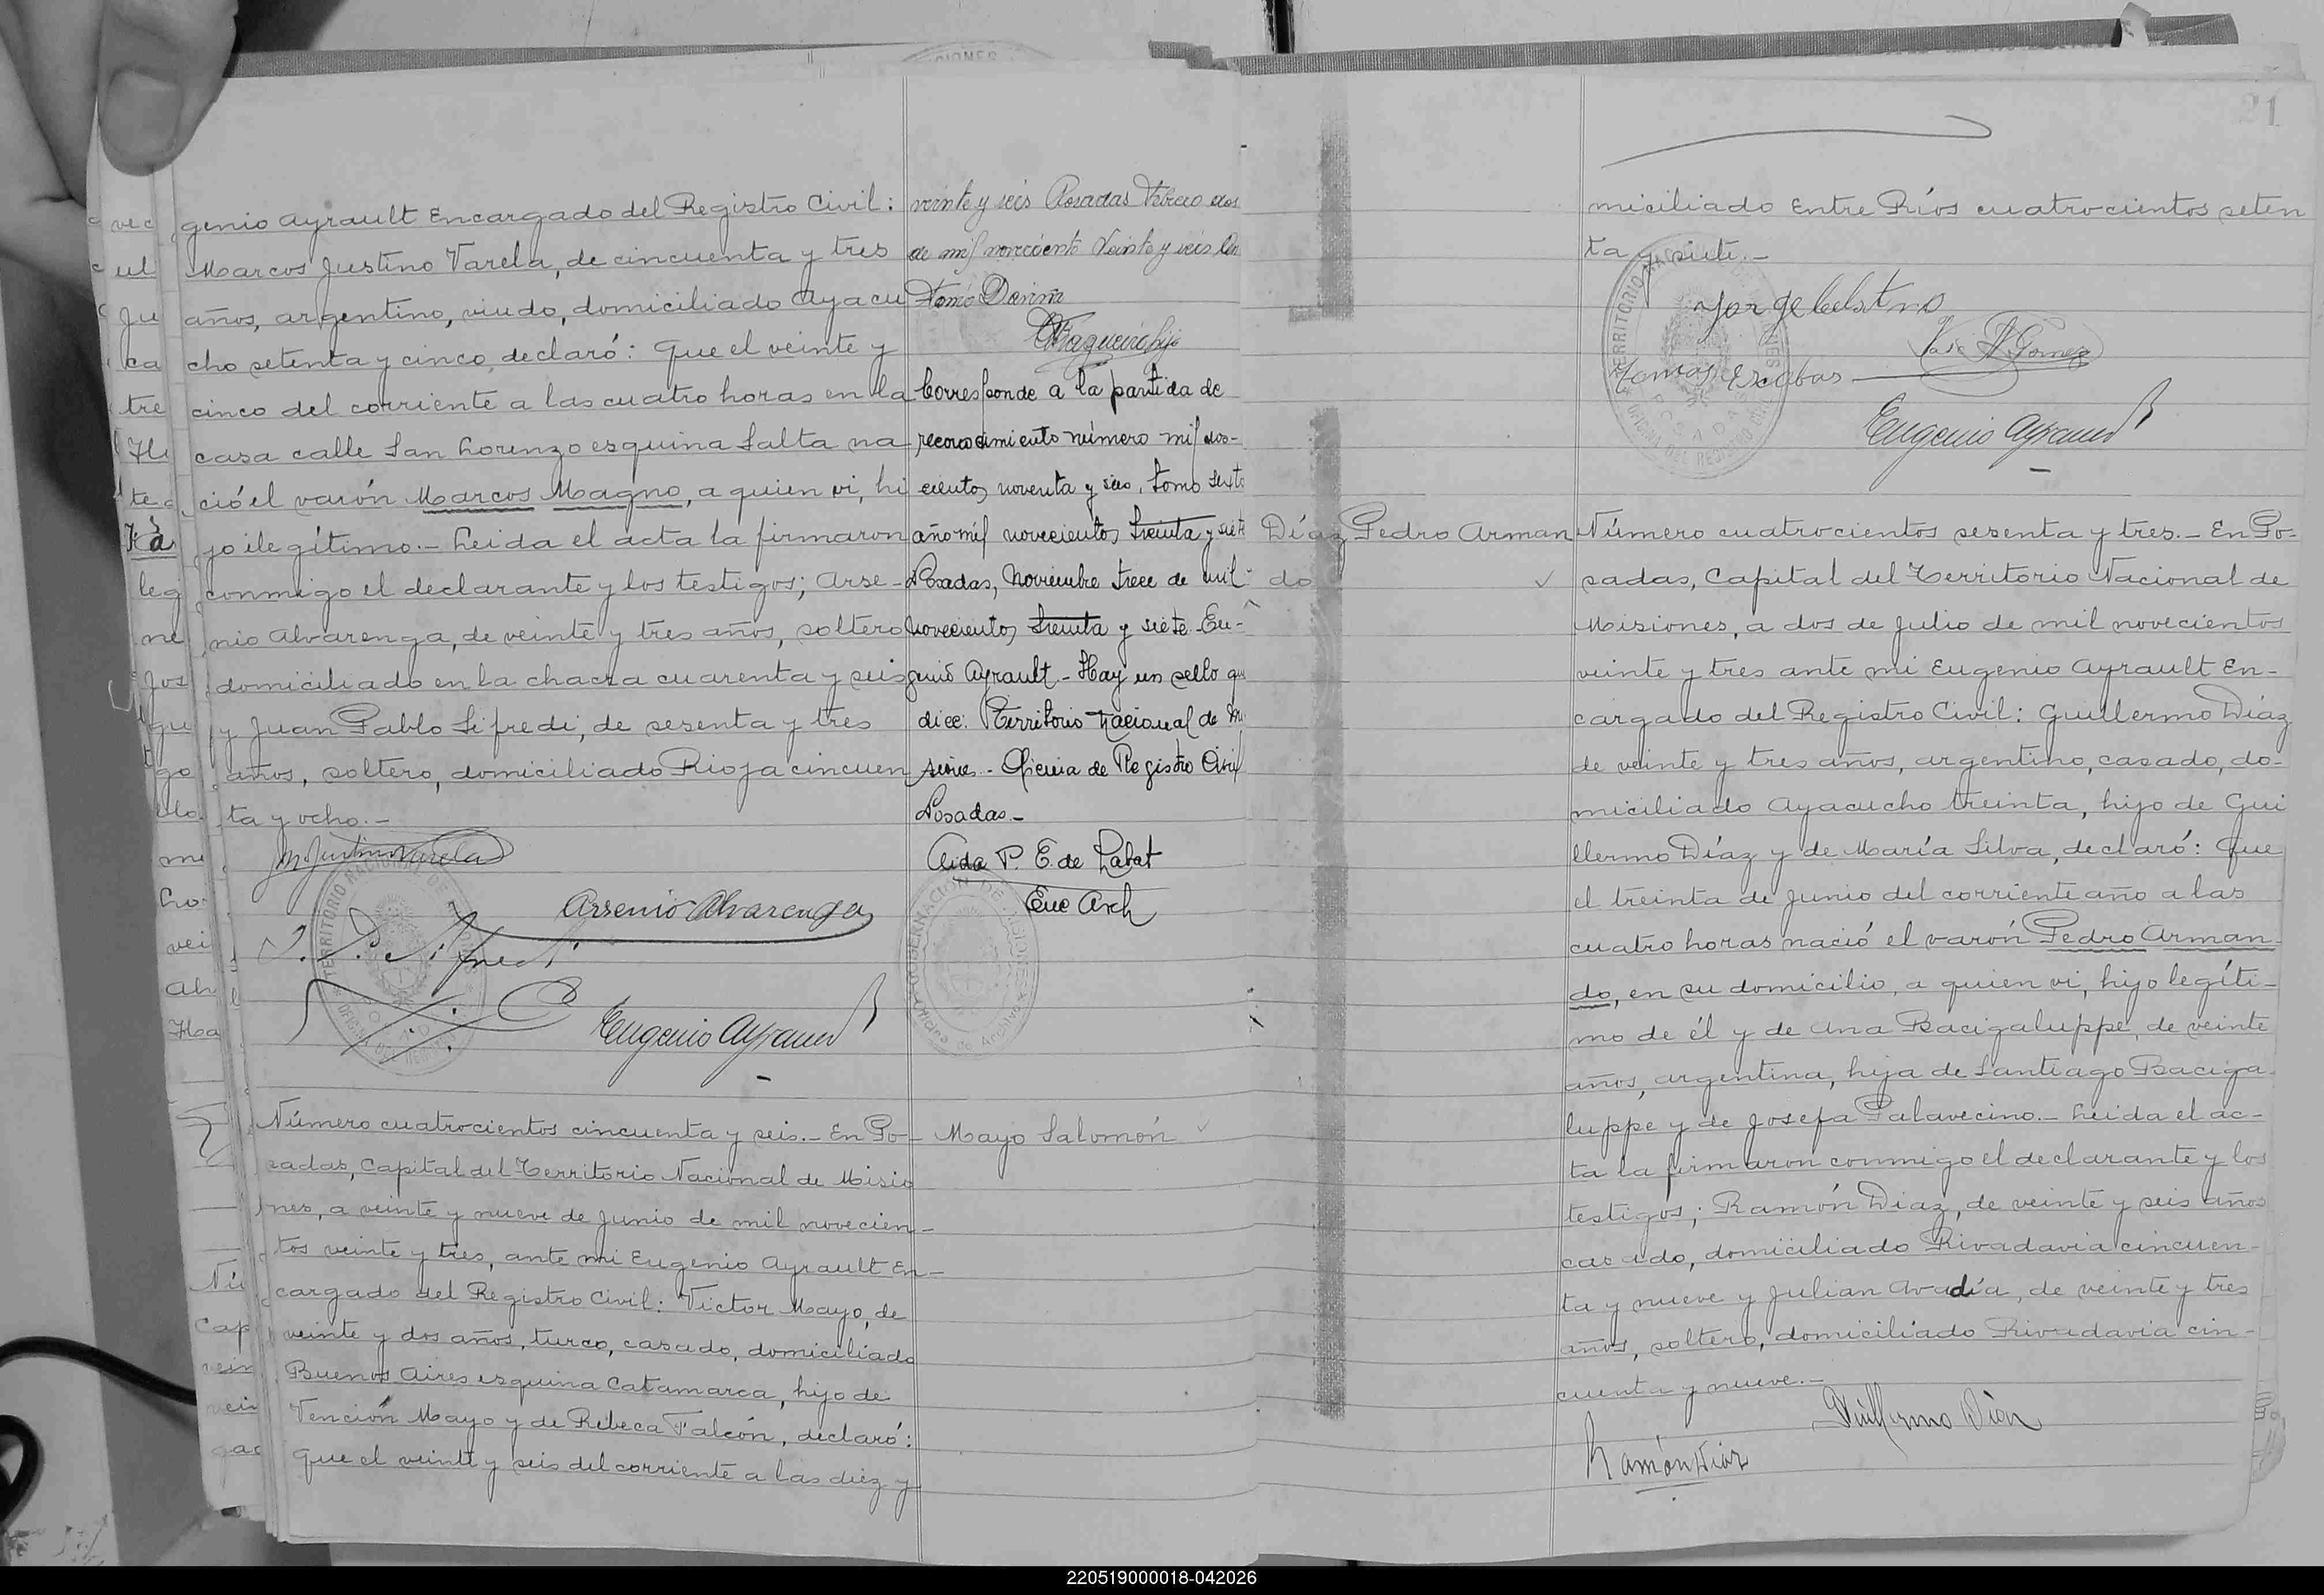 genio Ayrault Encargado del Registro Civil:
Marcos Justino Varela, de cincuenta y tres
años, argentino, viudo, domiciliado Ayacu
cho setenta y cinco, declaró: Que el veinte y
cinco del corriente a las cuatro horas en la
casa calle San Lorenzo esquina Salta na
ció el varón Marcos Magno, a quien vi, hi
jo ilegítimo.- Leida el acta la firmaron
conmigo el declarante y los testigos; Arse-
nio Alvarenga, de veinte y tres años, soltero
domiciliado en la chacra cuarenta y seis
y Juan Pablo Sifredi, de sesenta y tres
años, soltero, domiciliado Rioja cincuen
ta y ocho.-
M. Justino Varela
Arsenio Alvarenga
J. P. Sifredi
Eugenio Ayrault
veinte y seis Posadas Febrero dos
de mil novecientos veinte y seis
Corresponde a la partida de
reconocimiento número mil dos-
cientos noventa y seis, tomo sexto
año mil novecientos treinta y siete
Posadas, Noviembre trece de mil
novecientos treinta y siete. Eu-
genio Ayrault - Hay un sello que
dice: Territorio Nacional de Mi
siones.- Oficina de Registro Civil
Posadas.-
Aida P. E. de Labat
Enc Arch
Número cuatrocientos cincuenta y seis.- En Po-
Mayo Salomón
sadas, Capital del Territorio Nacional de Misio
nes, a veinte y nueve de Junio de mil novecien-
tos veinte y tres, ante mi Eugenio Ayrault En-
cargado del Registro Civil: Victor Mayo, de
veinte y dos años, turco, casado, domiciliado
Buenos Aires esquina Catamarca, hijo de
Vención Mayo y de Rebeca Falcón, declaró:
Que el veinte y seis del corriente a las diez y
21
miciliado Entre Ríos cuatrocientos seten
ta y siete.-
Jorge Celestino
José A. Gomez
Tomas Escobar
Eugenio Ayrault
Díaz Pedro Arman
do
Número cuatrocientos sesenta y tres.- En Po-
sadas, Capital del Territorio Nacional de
Misiones, a dos de Julio de mil novecientos
veinte y tres ante mi Eugenio Ayrault En-
cargado del Registro Civil: Guillermo Díaz
de veinte y tres años, argentino, casado, do-
miciliado Ayacucho treinta, hijo de Gui
llermo Díaz y de María Silva, declaró: Que
el treinta de Junio del corriente año a las
cuatro horas nació el varón Pedro Arman
do, en su domicilio, a quien vi, hijo legíti-
mo de él y de Ana Bacigaluppe, de veinte
años, argentina, hija de Santiago Baciga
luppe y de Josefa Palavecino.- Leida el ac-
ta la firmaron conmigo el declarante y los
testigos; Ramón Diaz, de veinte y seis años
casado, domiciliado Rivadavia cincuen-
ta y nueve y Julian Avadía, de veinte y tres
años, soltero, domiciliado Rivadavia cin-
cuenta y nueve.-
Guillermo Diaz
Ramón Diaz
220519000018-042026